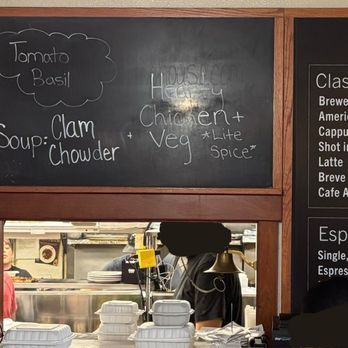 Tomato
Basil
Hearty
Soup: Clam Chowder + Chicken + Veg *Lite Spice*
Clas
Brewe
Ameri
Cappu
Shot i
Latte
Breve
Cafe A
Esp
Single,
Espres